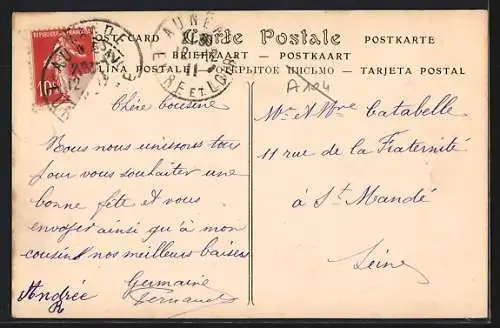 POST-CARD Carte Postale POSTKARTE
BRIEFKAART — POSTKAART
POSTALE — ОТКРЫТОЕ ПИСЬМО — TARJETA POSTAL
10c
AUNEAU
EURE ET LOIR
A 104
Chère cousine
Nous nous unissons tous
pour vous souhaiter une
bonne fête et vous
envoyer ainsi qu'à mon
cousin nos meilleurs baisers
Germaine
Andrée Fernand
R
Mr et Mme Catabelle
11 rue de la Fraternité
à St Mandé
Seine